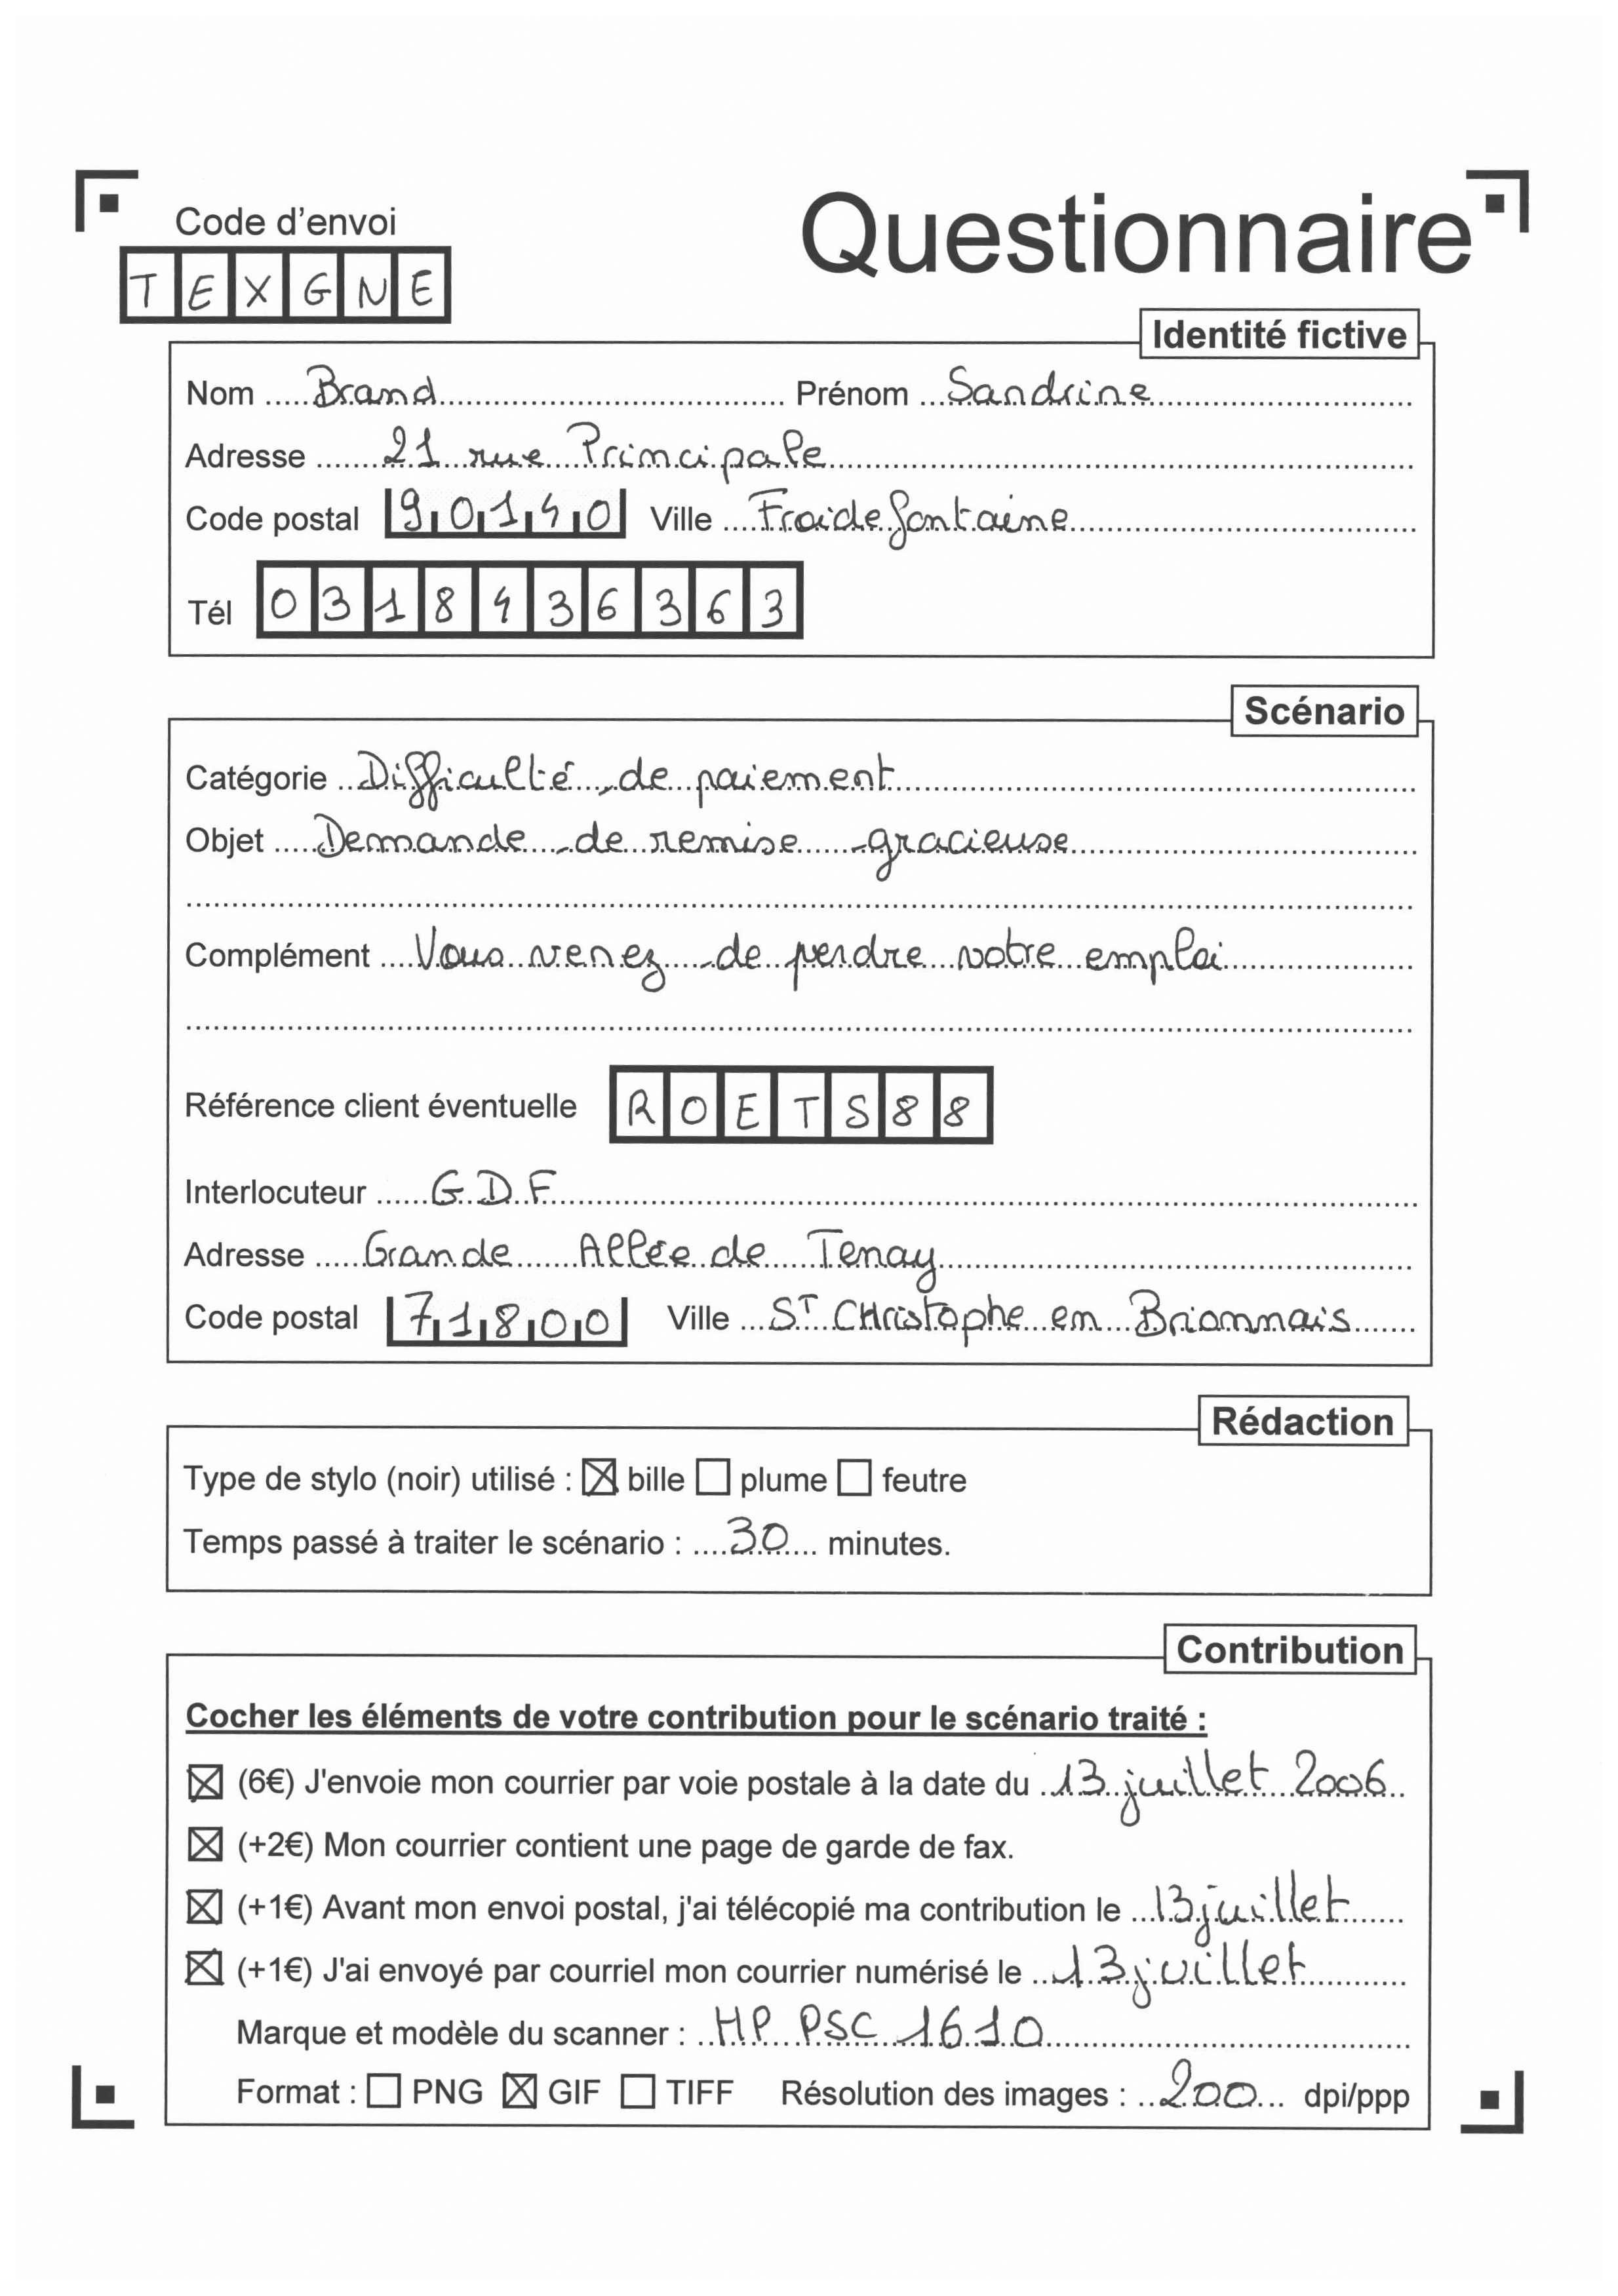 Code d'envoi
Questionnaire
TEXGNE
Identité fictive
Nom Brand Prénom Sandrine
Adresse 21 rue Principale
Code postal 90140 Ville Froidefontaine
Tél 0318436363
Scénario
Catégorie Difficulté de paiement
Objet Demande de remise gracieuse
Complément Vous venez de perdre votre emploi
Référence client éventuelle ROETS88
Interlocuteur GDF
Adresse Grande Allée de Tenay
Code postal 71800 Ville ST CHristophe en Brionnais
Rédaction
Type de stylo (noir) utilisé : ☒ bille ☐ plume ☐ feutre
Temps passé à traiter le scénario : 30 minutes.
Contribution
Cocher les éléments de votre contribution pour le scénario traité :
☒ (6€) J'envoie mon courrier par voie postale à la date du 13 juillet 2006
☒ (+2€) Mon courrier contient une page de garde de fax.
☒ (+1€) Avant mon envoi postal, j'ai télécopié ma contribution le 13 juillet
☒ (+1€) J'ai envoyé par courriel mon courrier numérisé le 13 juillet
Marque et modèle du scanner : HP PSC 1610
Format : ☐ PNG ☒ GIF ☐ TIFF Résolution des images : 200 dpi/ppp